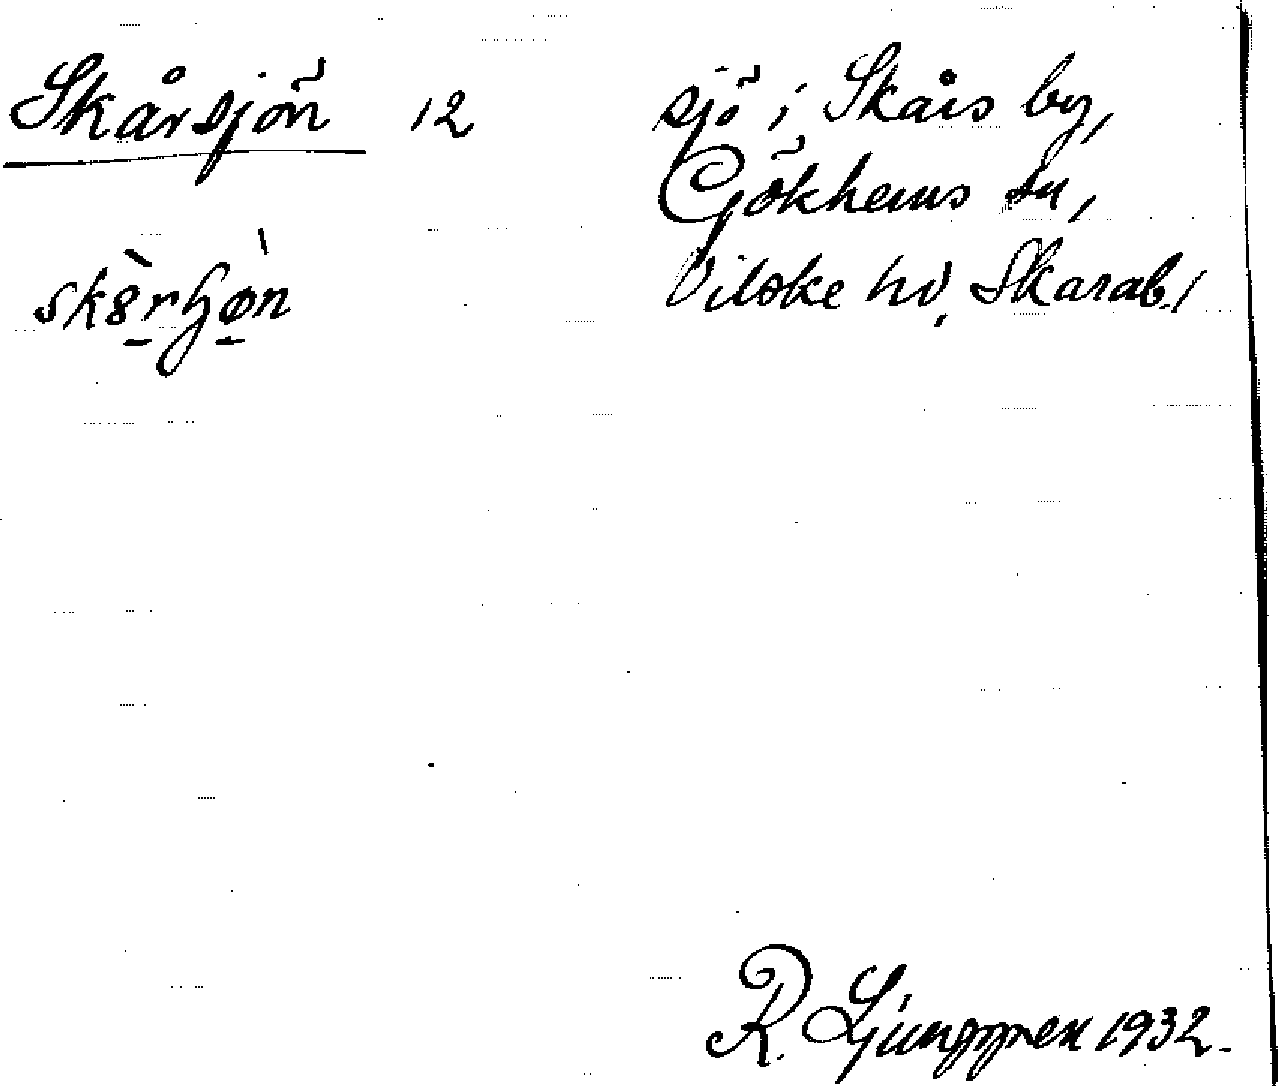 Skårsjön 12
sjö i Skårs by,
Gökhems sn,
Vilske hd, Skarab.l
R. Ljunggren 1932.